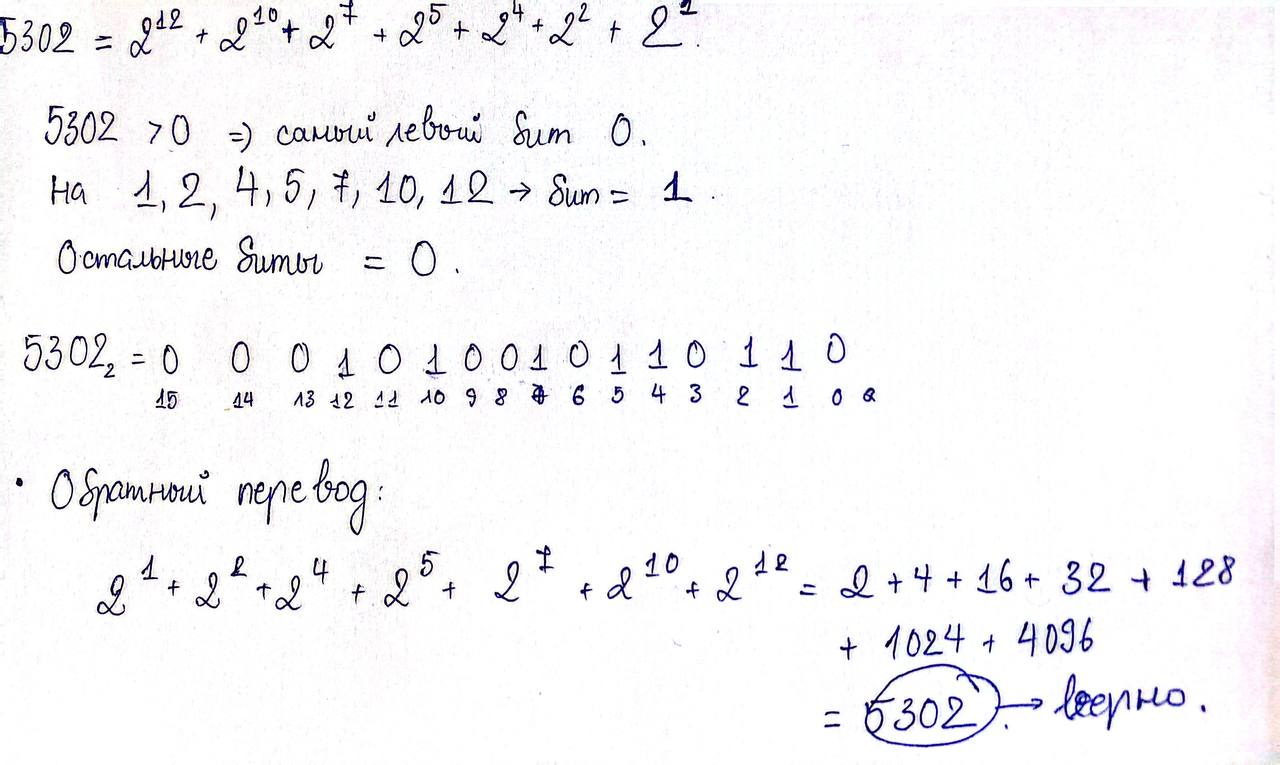 5302 = 2¹² + 2¹⁰ + 2⁷ + 2⁵ + 2⁴ + 2² + 2¹.
5302 > 0 => самый левый бит 0.
На 1, 2, 4, 5, 7, 10, 12 → бит = 1.
Остальные биты = 0.
5302₂ = 0 0 0 1 0 1 0 0 1 0 1 1 0 1 1 0
15 14 13 12 11 10 9 8 7 6 5 4 3 2 1 0 2
• Обратный перевод:
2¹ + 2² + 2⁴ + 2⁵ + 2⁷ + 2¹⁰ + 2¹² = 2 + 4 + 16 + 32 + 128
+ 1024 + 4096
= 5302. → верно.